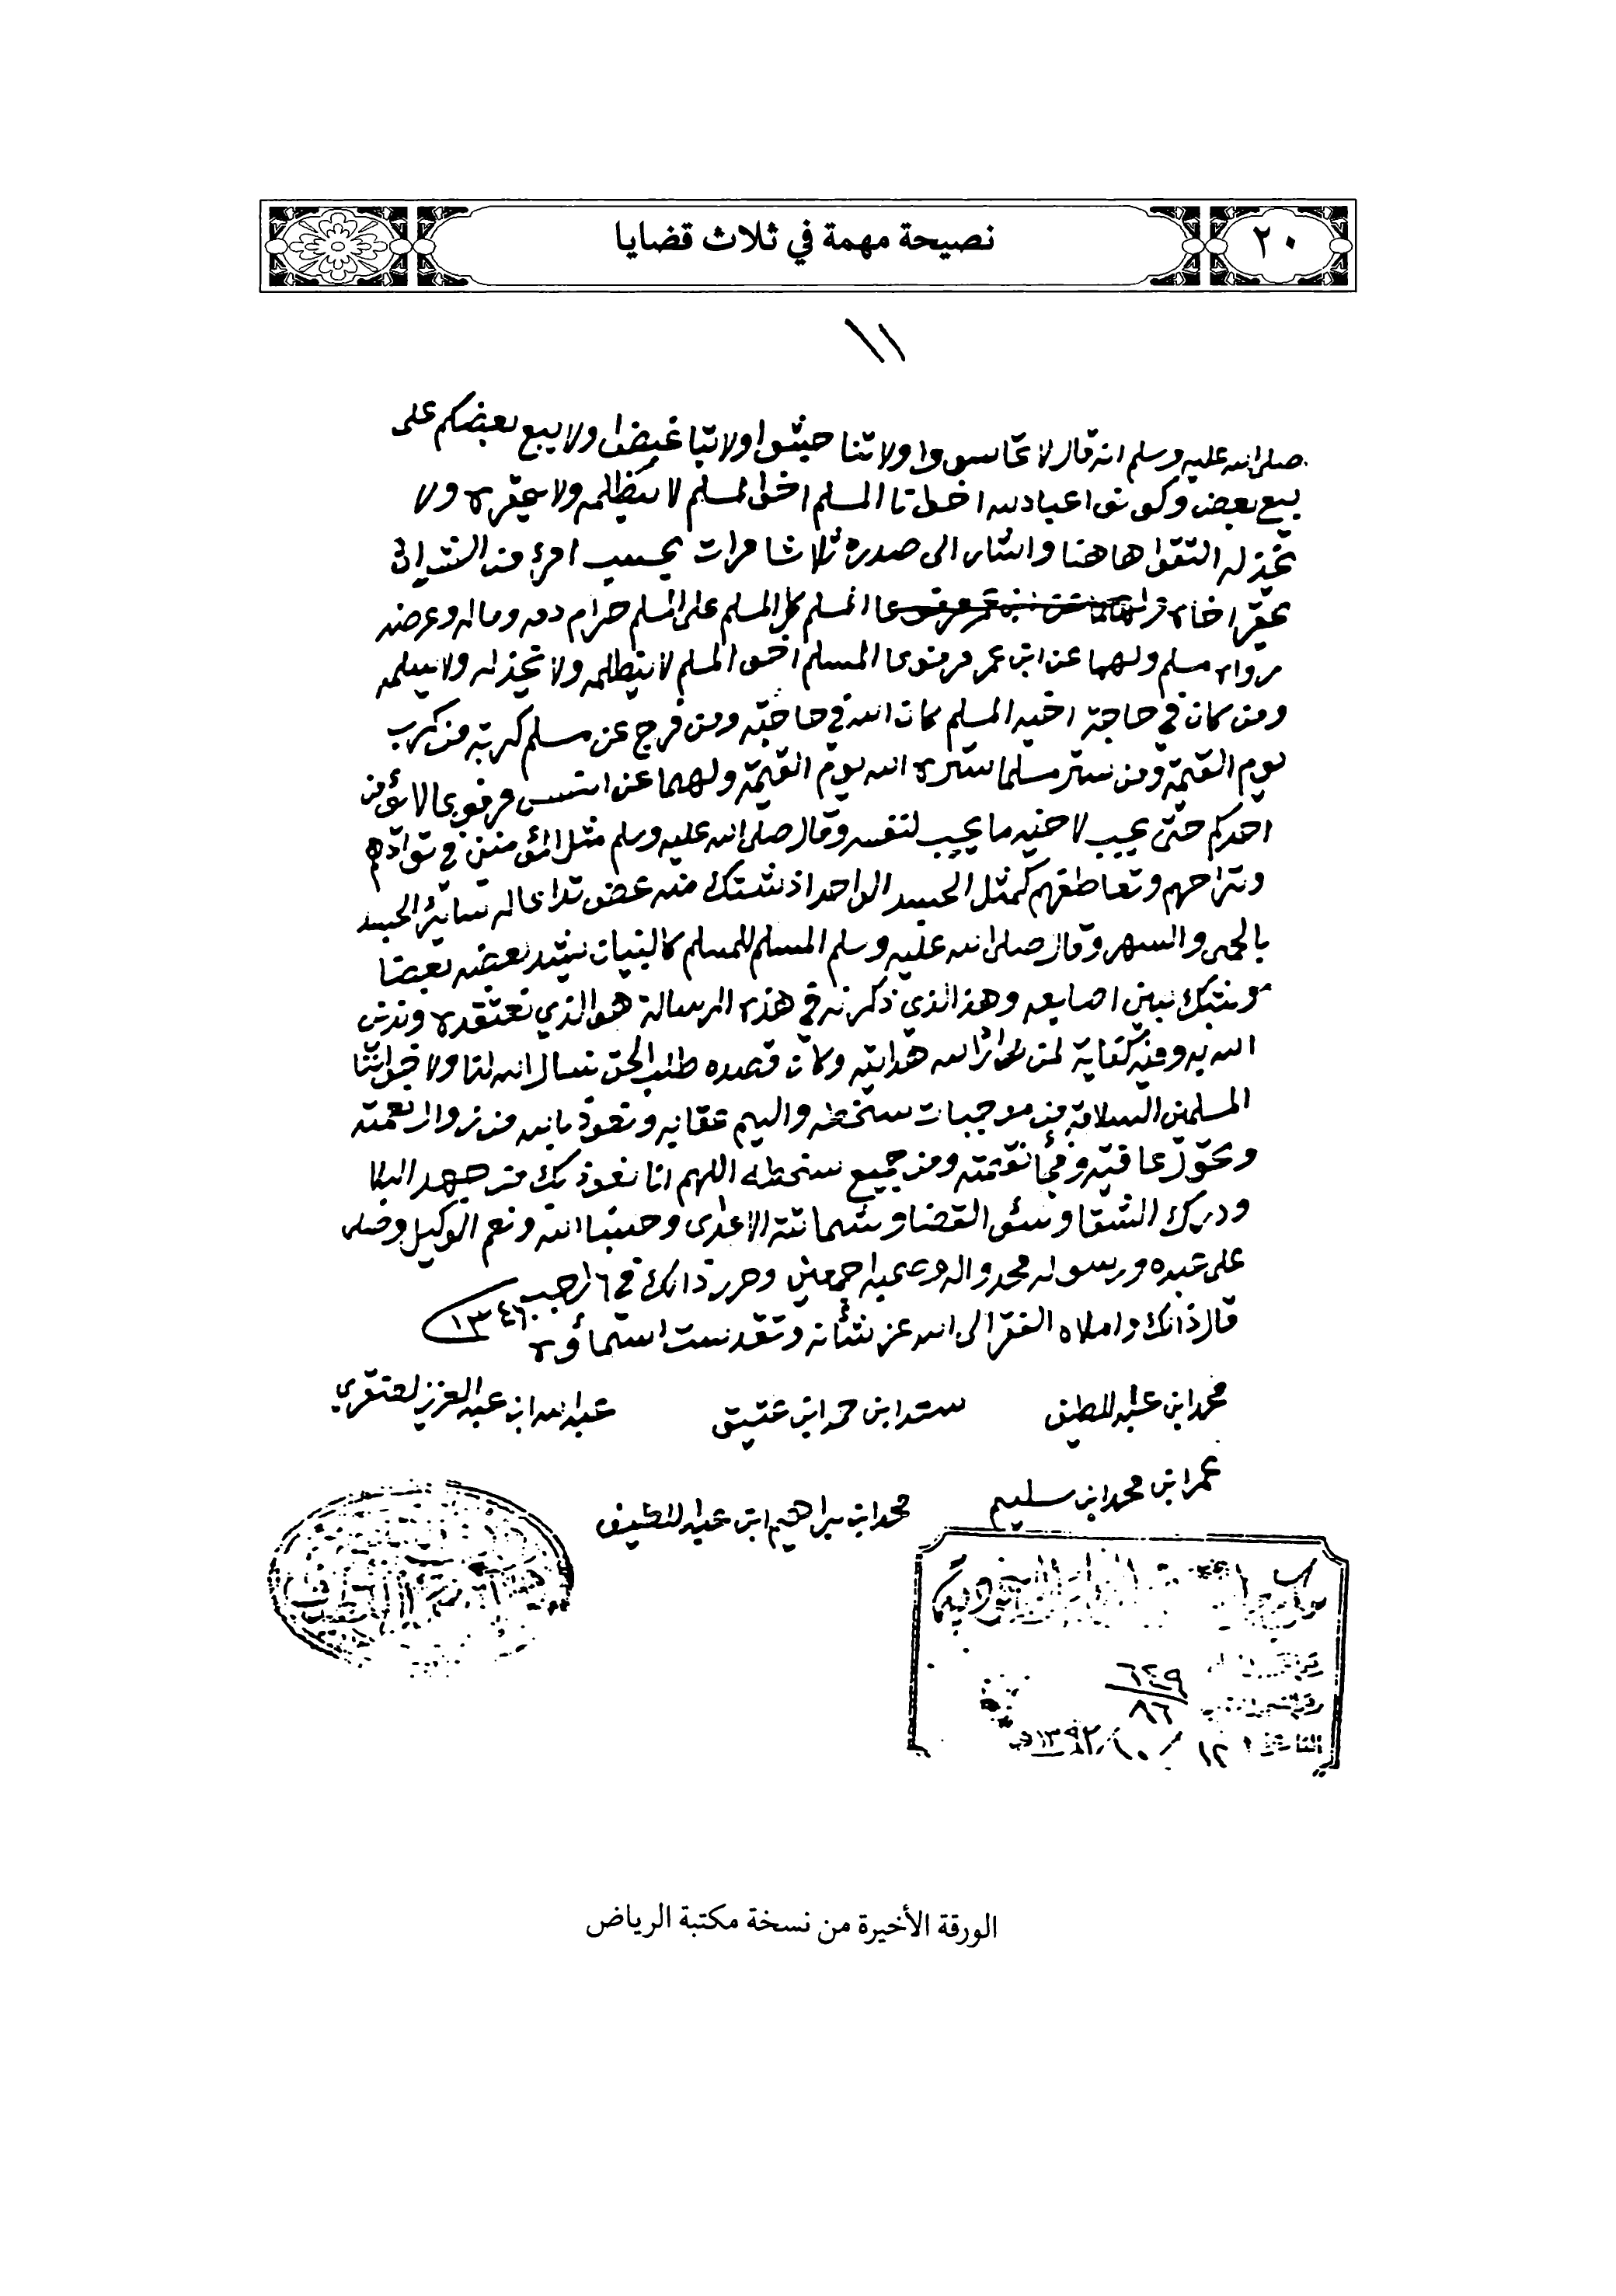 ٢٠
نصيحة مهمة في ثلاث قضايا
١١
صلى الله عليه وسلم انه قال لا تحاسدوا ولا تناجشوا ولا تباغضوا ولا يبع بعضكم على
بيع بعض وكونوا عباد الله اخوانا المسلم اخو المسلم لا يظلمه ولا يحقره ولا
يخذله التقوا هاهنا واشار الى صدره ثلاثا مرات بحسب امرؤ من الشر ان
يحقر اخاه المسلم كل المسلم على المسلم حرام دمه وماله وعرضه
رواه مسلم ولهما عن ابن عمر مرفوعا المسلم اخو المسلم لا يظلمه ولا يخذله ولا يسلمه
ومن كان في حاجة اخيه المسلم كان الله في حاجته ومن فرج عن مسلم كربة من كرب
يوم القيمة ومن ستر مسلما ستره الله يوم القيمة ولهما عن انس مرفوعا لا يؤمن
احدكم حتى يحب لاخيه ما يحب لنفسه وقال صلى الله عليه وسلم مثل المؤمنين في توادهم
وتراحمهم وتعاطفهم كمثل الجسد الواحد اذ شتكا منه عضو تداعا له سائر الجسد
بالحمى والسهر وقال صلى الله عليه وسلم المسلم للمسلم كالبنيان يشد بعضه بعضا
وشبك بين اصابعه وهذا الذي ذكرنه في هذه الرسالة هو الذي نعتقده وندين
الله به وفيه كفاية لمن اراد الله هدايته وكان قصده طلب الحق نسال الله لنا ولاخواننا
المسلمين السلامة من موجبات سخطه واليم عقابه ونعوذ بالله من زوال نعمته
وتحول عافيته وفجأ نقمته ومن جميع سخطه اللهم انا نعوذ بك من جهد البلا
ودرك الشقا وسؤ القضا وشماتة الاعدى وحسبنا الله ونعم الوكيل وصلى
على عبده ورسوله محمد واله وصحبه اجمعين وحرر ذالك في ٦ رجب ١٣٤٦
قال ذالك واملاه الفقرا الى الله عز شأنه وتقدست اسماؤه
محمد ابن عبد اللطيف سعد ابن حمد ابن عتيق عبد الله ابن عبد العزيز العنقري
عمر ابن محمد ابن سليم محمد ابن ابراهيم ابن عبد اللطيف
٨٦
التاريخ ١٢ / ١٠ / ١٣٩٢
الورقة الأخيرة من نسخة مكتبة الرياض